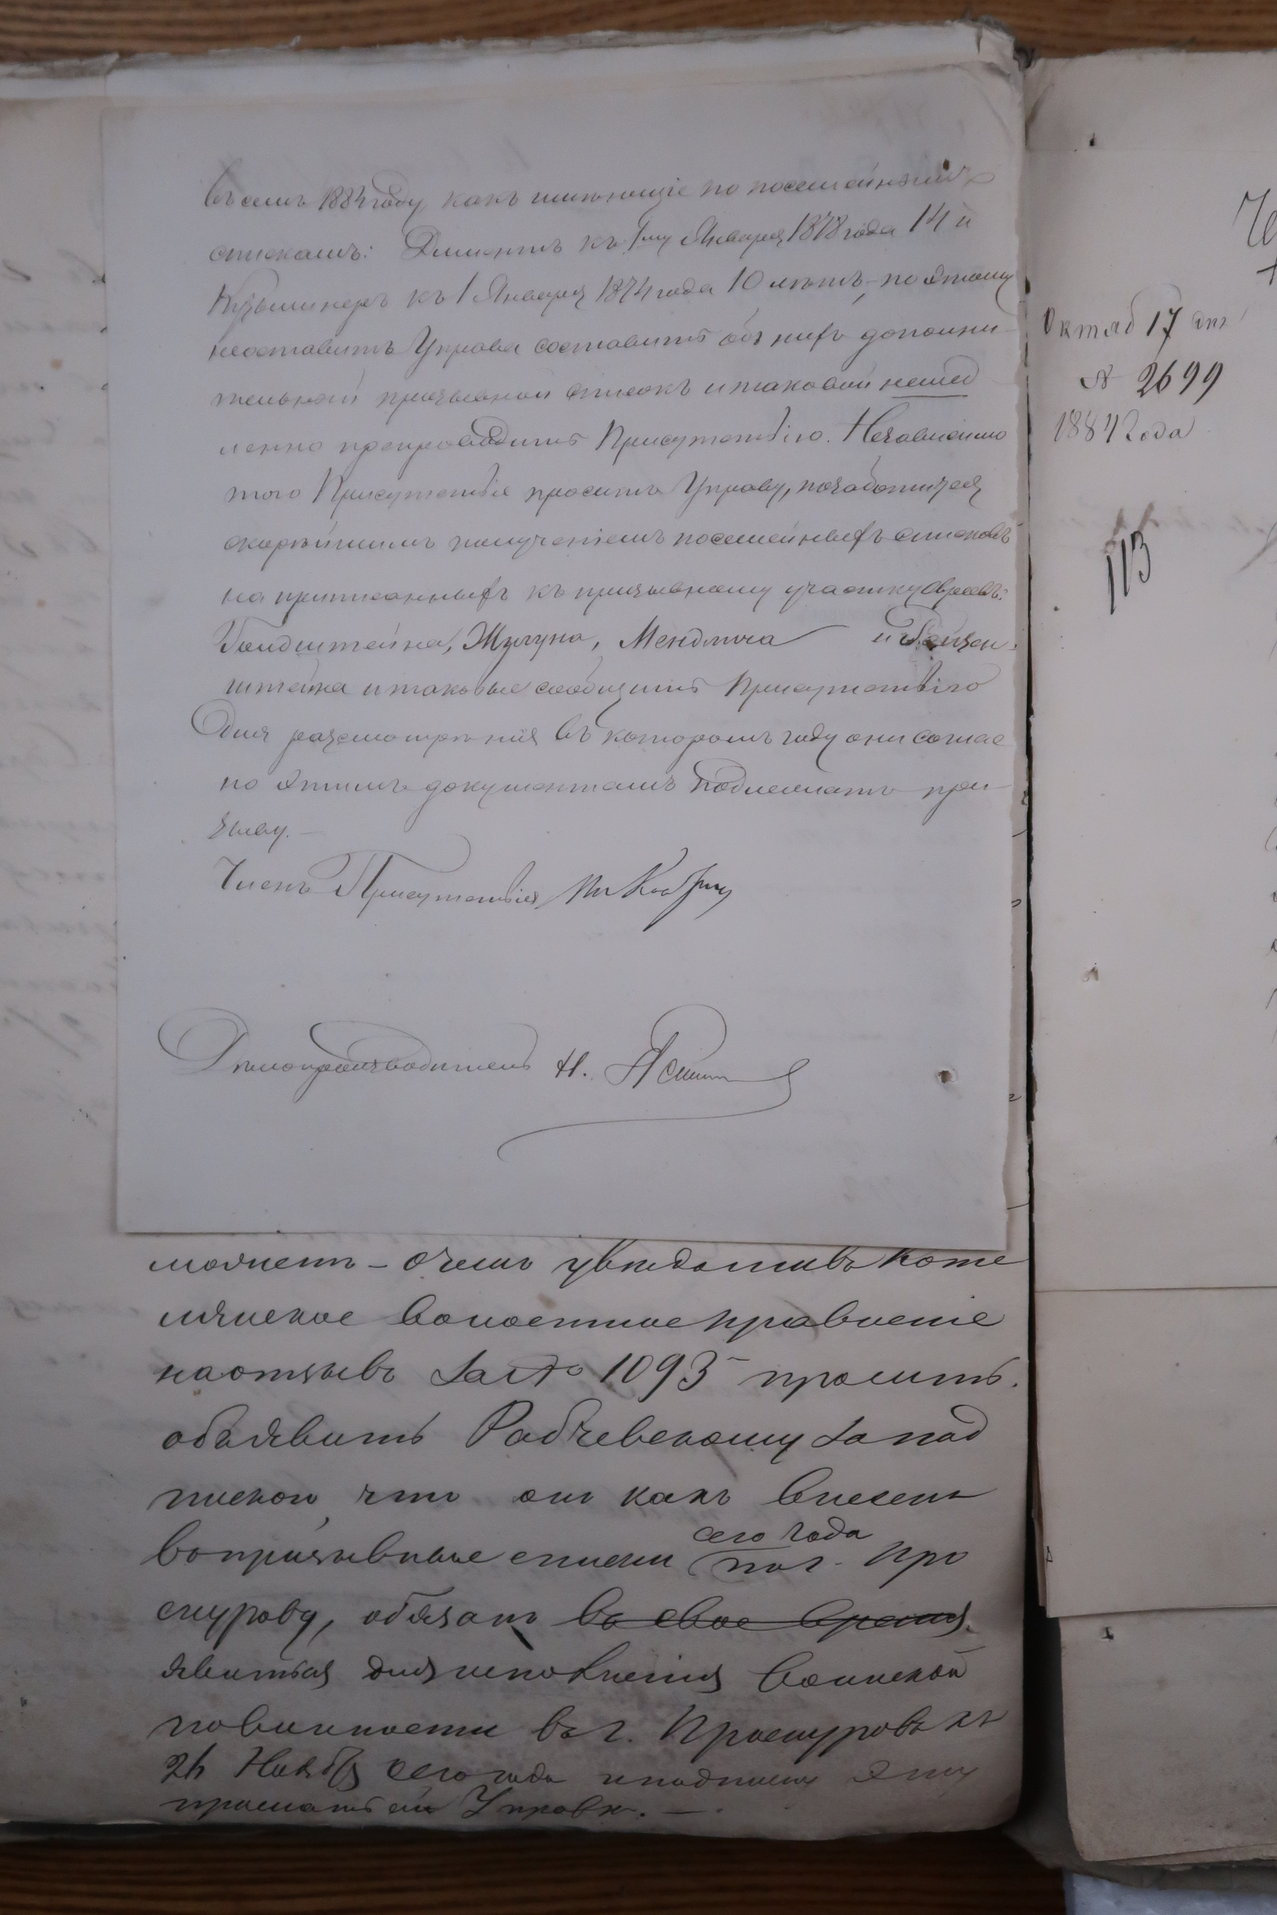 въ семъ 1884 году, какъ имѣющіе по посемейнымъ
спискамъ: къ 1му Января 1878 года 14 и
къ 1 Января 1874 года 10 лѣтъ, – по этому
неоставитъ Управа составить объ нихъ дополни-
тельный призывной списокъ и таковой немед
ленно препроводить Присутствію. Независимо
того Присутствіе проситъ Управу, позаботиться
скорѣйшимъ полученіемъ посемейныхъ списковъ
на приписанныхъ къ призывному участку Евреевъ:
Жулуна, Мендлича и
штейна и таковые сообщить Присутствію
Для разсмотрѣнія въ которомъ году они соглас
но этимъ документамъ подлежатъ при-
зыву. –
Членъ Присутствія
Дѣлопроизводитель Н.
можетъ – о чемъ увѣдомивъ
волостное правленіе
на отзывъ за № 1093 проситъ
объявить Рабчевскому за под
пиской, что онъ какъ внесенъ
въ призывные списки сего года по г. Про
скурову, обязанъ въ свое время
явиться для исполненія воинской
повинности въ г. Проскуровъ къ
Ноябр сего года и подписку эту
прислать Управѣ. –
Октяб 17 дня
№ 2699
1884 года
113